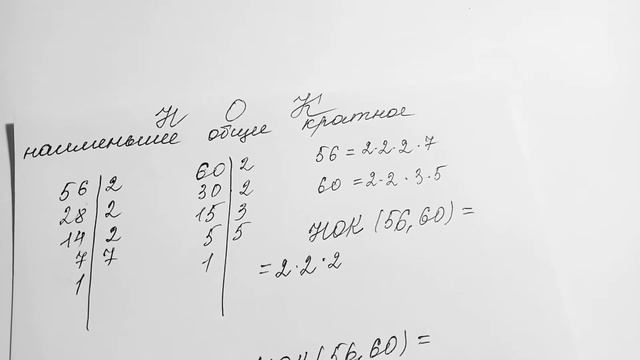 Н О К
наименьшее общее кратное
56 | 2
28 | 2
14 | 2
7 | 7
1
60 | 2
30 | 2
15 | 3
5 | 5
1
56 = 2·2·2·7
60 = 2·2·3·5
НОК (56,60) =
= 2·2·2
НОК (56,60) =